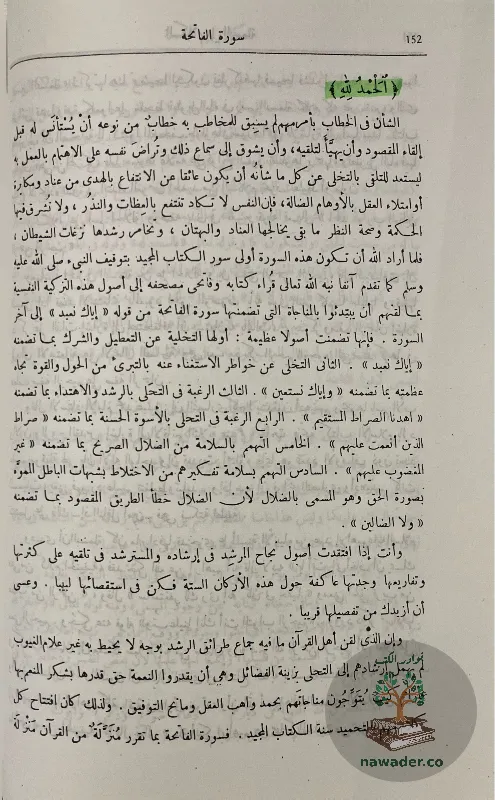 152
سورة الفاتحة
﴿ اَلْحَمْدُ لِلهِ ﴾
الشأن فى الخطاب بأمر مهم لم يسبق للمخاطب به خطاب من نوعه أنْ يُسْتأنَس له قبل
إلقاء المقصود وأن يهيَّأ لتلقيه، وأن يشوق إلى سماع ذلك وتُراضَ نفسه على الاهتمام بالعمل به
ليستعد للتلقى بالتخلى عن كل ما شأنُه أن يكون عائقا عن الانتفاع بالهدى من عناد ومكابرة
أو امتلاء العقل بالأوهام الضالة، فإن النفس لا تكاد تنتفع بالعِظات والنذُر ، ولا تُشرق فيها
الحكمة وصحة النظر ما بقى يخالجها العناد والبهتان ، وتخامر رشدها نزغات الشيطان ،
فلما أراد الله أن تكون هذه السورة أولى سور الكتاب المجيد بتوقيف النبىء صلى الله عليه
وسلم كما تقدم آنفا نبه الله تعالى قُراء كتابه وفاتحى مصحفه إلى أصول هذه التزكية النفسية
بما لقنهم أن يبتدئوا بالمناجاة التى تضمنتها سورة الفاتحة من قوله « إياك نعبد » إلى آخر
السورة . فإنها تضمنت أصولا عظيمة : أولها التخلية عن التعطيل والشرك بما تضمنه
« إياك نعبد » . الثانى التخلى عن خواطر الاستغناء عنه بالتبرئ من الحول والقوة تجاه
عظمته بما تضمنه « وإياك نستعين » . الثالث الرغبة فى التحلى بالرشد والاهتداء بما تضمنه
« اهدنا الصراط المستقيم » . الرابع الرغبة فى التحلى بالأسوة الحسنة بما تضمنه « صراط
الذين أنعمت عليهم » . الخامس التهمم بالسلامة من الضلال الصريح بما تضمنه « غير
المغضوب عليهم » . السادس التهمم بسلامة تفكيرهم من الاختلاط بشبهات الباطل المموَّه
بصورة الحق وهو المسمى بالضلال لأن الضلال خطأ الطريق المقصود بما تضمنه
« ولا الضالين » .
وأنت إذا افتقدت أصول نجاح المرشِد فى إرشاده والمسترشد فى تلقيه على كثرتها
وتفاريعها وجدتها عاكفة حول هذه الأركان الستة فكن فى استقصائها لبيبا . وعسى
أن أزيدك من تفصيلها قريبا .
وإن الذى لقن أهل القرآن ما فيه جماع طرائق الرشد بوجه لا يحيط به غير علام الغيوب
لم يهمل إرشادهم إلى التحلى بزينة الفضائل وهى أن يقدروا النعمة حق قدرها بشكر المنعم بها
يتَوِّجُون مناجاتهم بحمد واهب العقل ومانح التوفيق . ولذلك كان افتتاح كل
بالتحميد سنة الكتاب المجيد . فسورة الفاتحة بما تقرر مُنَزَّلَةٌ من القرآن مَنْزِلَةَ
نوادر الكتب
nawader.co